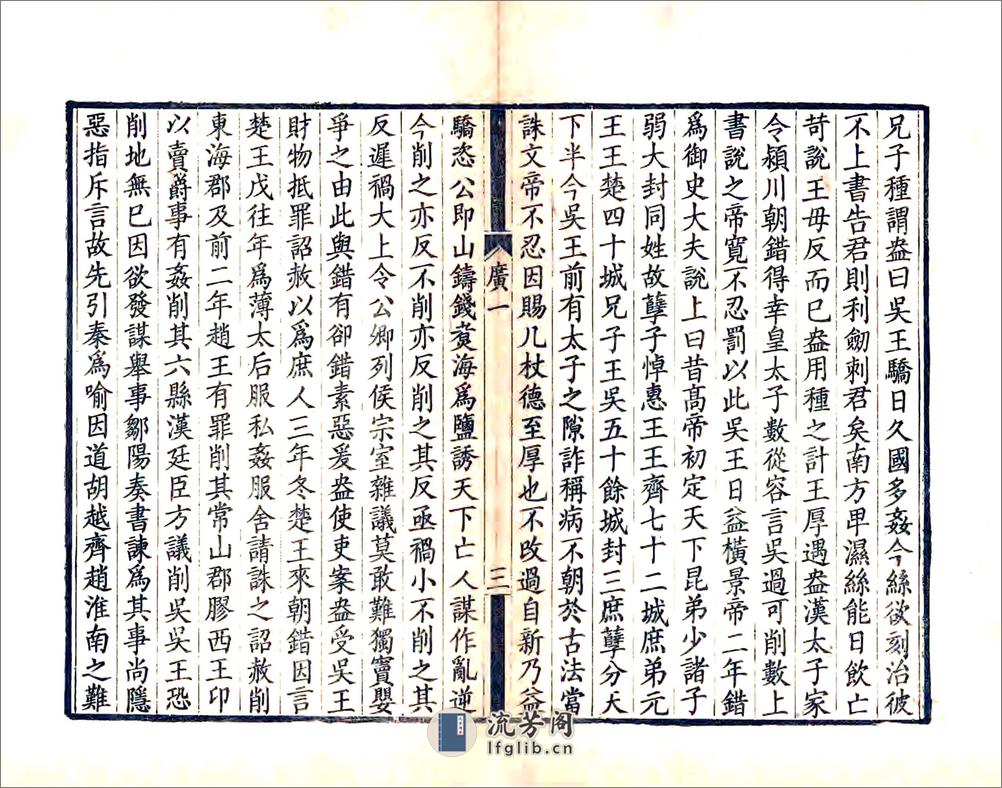 兄子種謂盎曰吳王驕日久國多姦今絲欲刻治彼
不上書告君則利劒刺君矣南方卑濕絲能日飲亡
苛說王毋反而已盎用種之計王厚遇盎漢太子家
令潁川朝錯得幸皇太子數從容言吳過可削數上
書說之帝寬不忍罰以此吳王日益橫景帝二年錯
爲御史大夫說上曰昔髙帝初定天下昆弟少諸子
弱大封同姓故孽子悼惠王王齊七十二城庶弟元
王王楚四十城兄子王吳五十餘城封三庶孽分天
下半今吳王前有太子之隙詐稱病不朝於古法當
誅文帝不忍因賜几杖德至厚也不改過自新乃益
廣一
三
驕恣公即山鑄錢煑海爲鹽誘天下亡人謀作亂逆
今削之亦反不削亦反削之其反亟禍小不削之其
反遲禍大上令公卿列侯宗室雜議莫敢難獨竇嬰
爭之由此與錯有卻錯素惡爰盎使吏案盎受吳王
財物抵罪詔赦以爲庶人三年冬楚王來朝錯因言
楚王戊往年爲薄太后服私姦服舍請誅之詔赦削
東海郡及前二年趙王有罪削其常山郡膠西王卬
以賣爵事有姦削其六縣漢廷臣方議削吳吳王恐
削地無已因欲發謀舉事鄒陽奏書諫爲其事尚隱
惡指斥言故先引秦爲喻因道胡越齊趙淮南之難
流芳阁
lfglib.cn